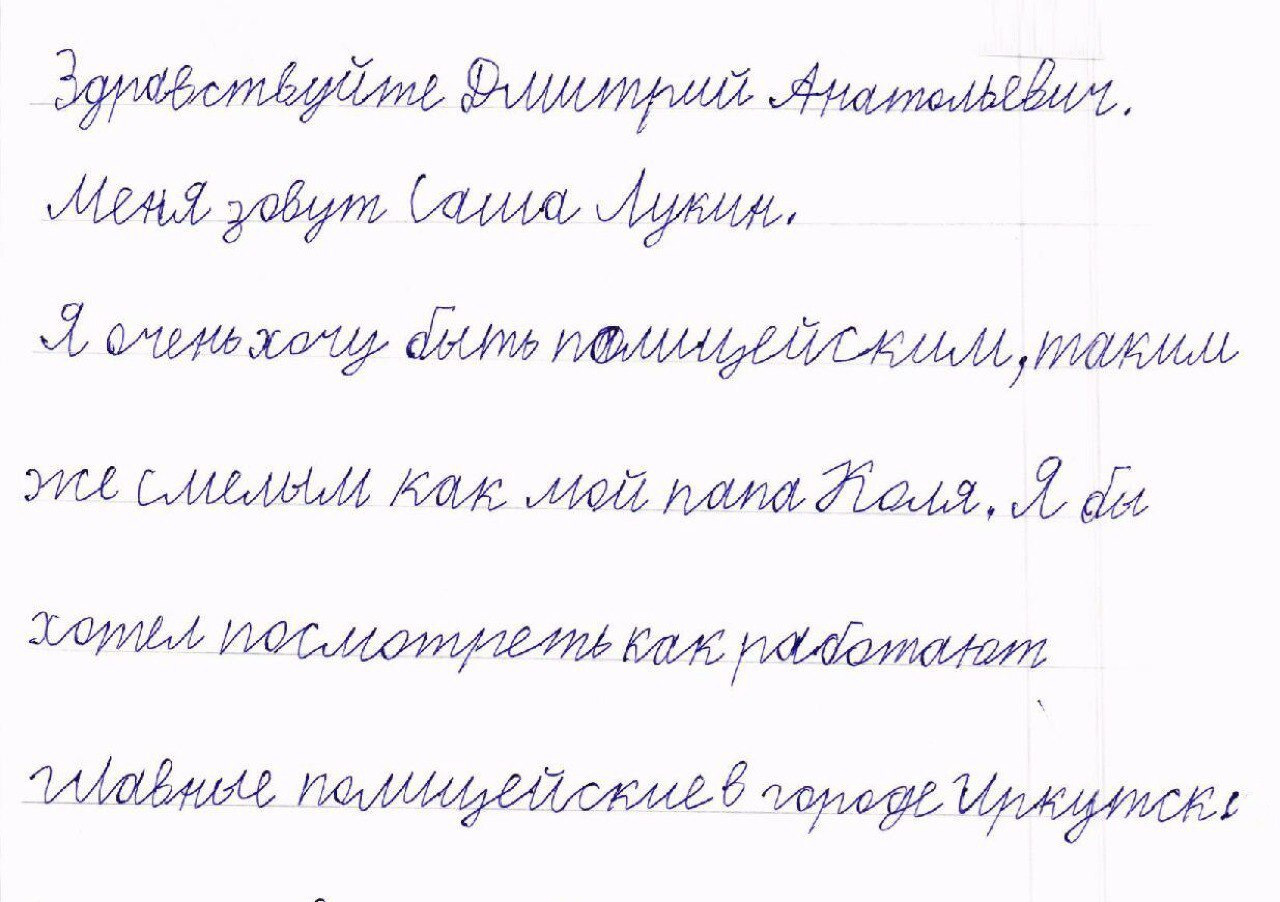 Здравствуйте Дмитрий Анатольевич.
Меня зовут Саша Лукин.
Я очень хочу быть полицейским, таким
же смелым как мой папа Коля. Я бы
хотел посмотреть как работают
главные полицейские в городе Иркутск.